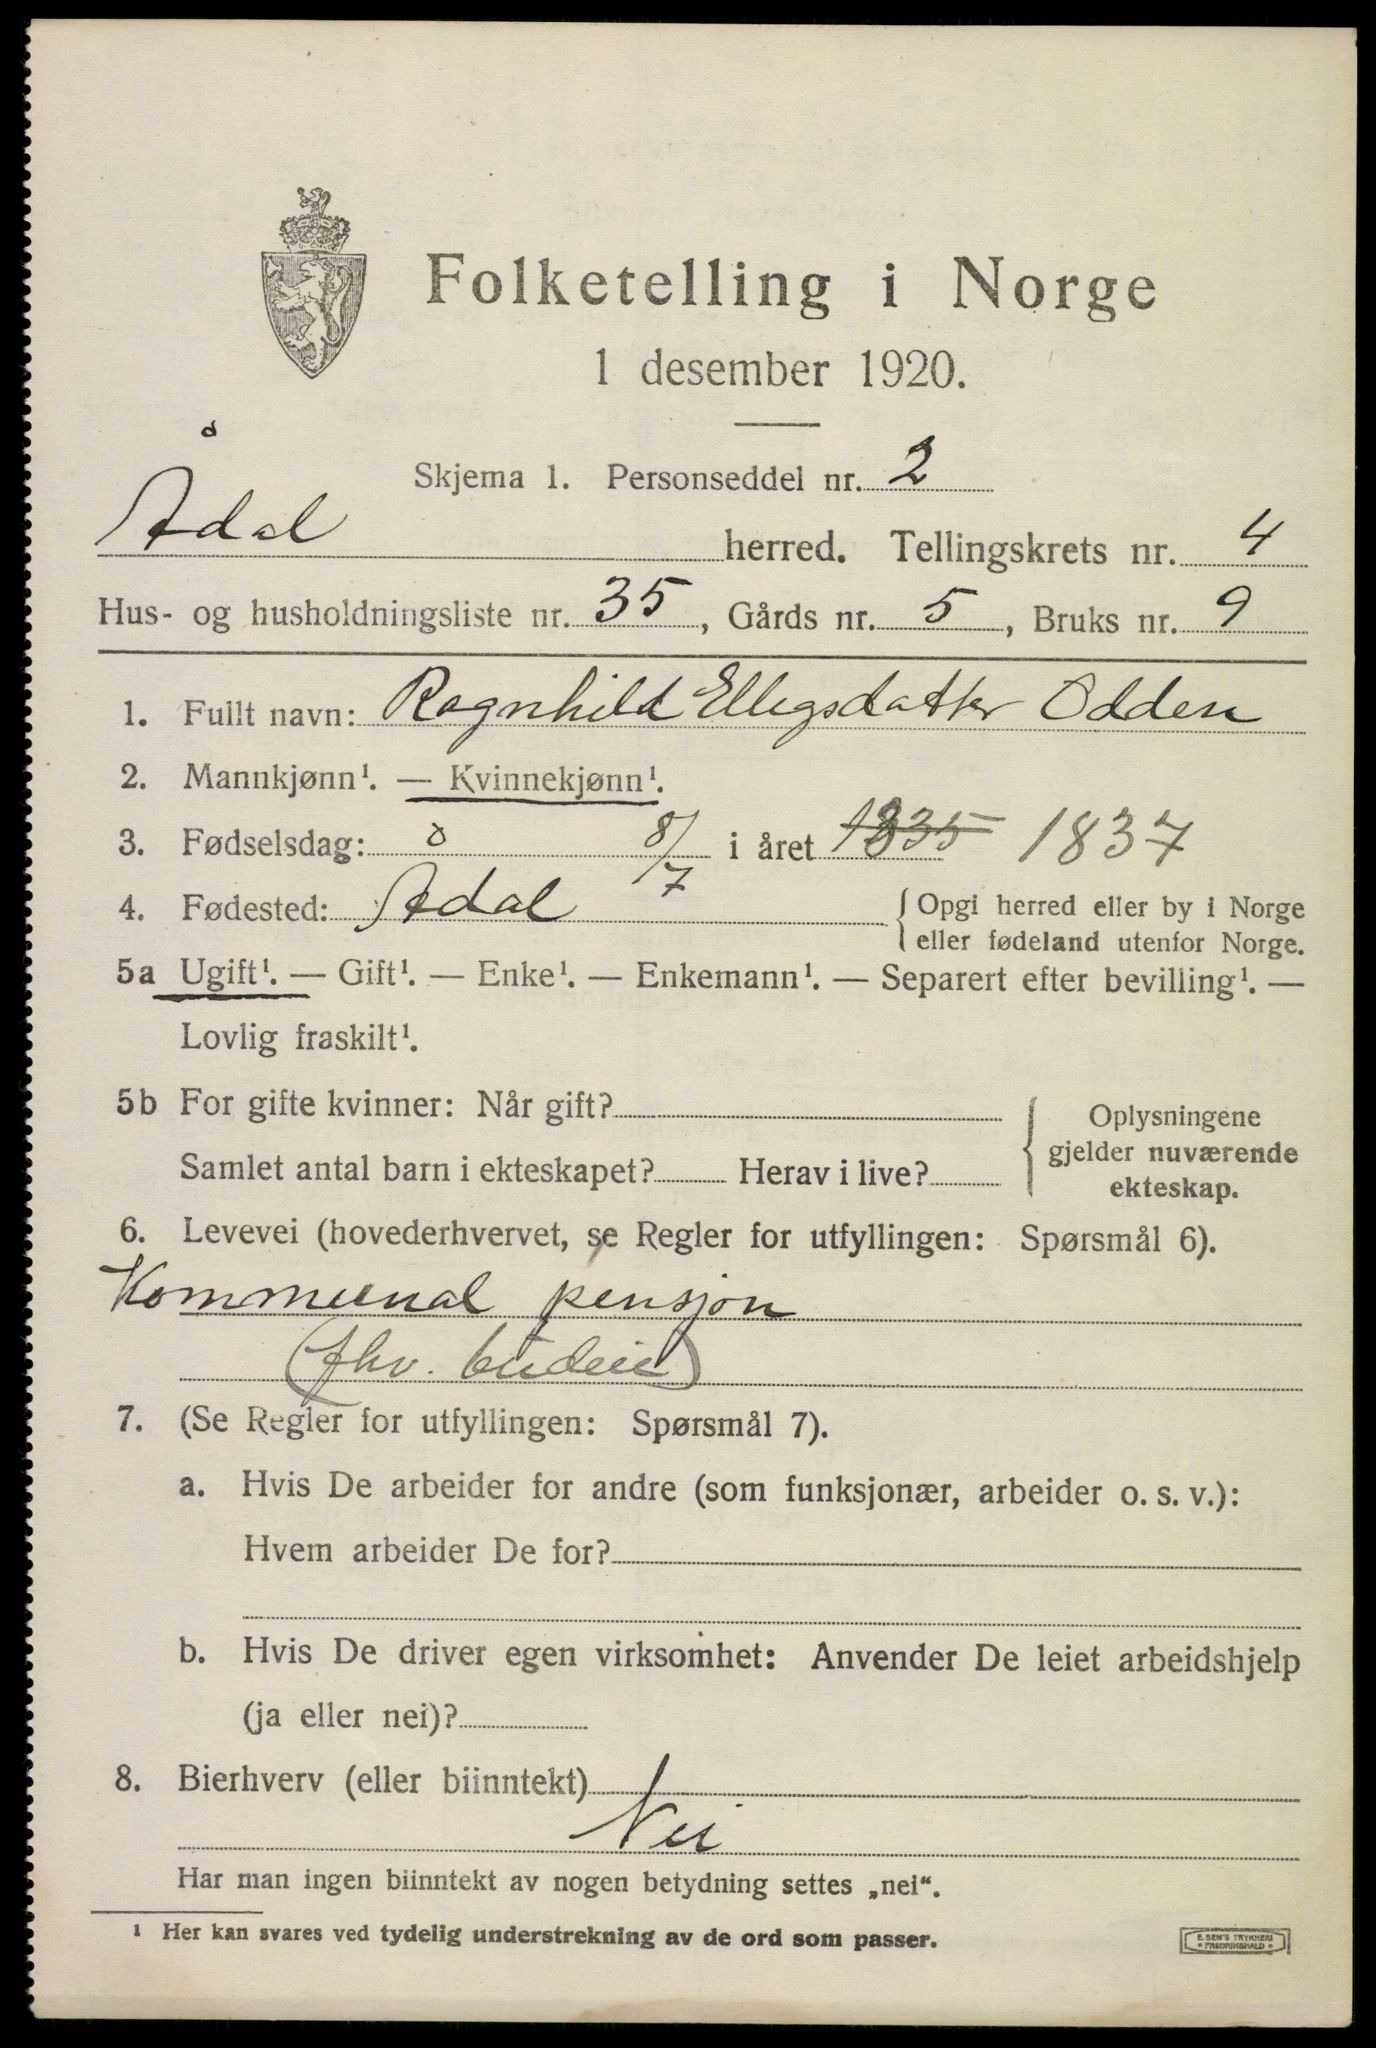 Folketelling i Norge
1 desember 1920.
Skjema 1. Personseddel nr. 2
Ådal herred. Tellingskrets nr. 4
Hus- og husholdningsliste nr. 35, Gårds nr. 5, Bruks nr. 9
1. Fullt navn: Ragnhild Ellegsdatter Odden
2. Mannkjønn¹. — Kvinnekjønn¹.
3. Fødselsdag: 8/7 i året 1835 1837
4. Fødested: Ådal { Opgi herred eller by i Norge
eller fødeland utenfor Norge.
5a Ugift¹. — Gift¹. — Enke¹. — Enkemann¹. — Separert efter bevilling¹. —
Lovlig fraskilt¹.
5b For gifte kvinner: Når gift?
Samlet antal barn i ekteskapet? Herav i live?
Oplysningene
gjelder nuværende
ekteskap.
6. Levevei (hovederhvervet, se Regler for utfyllingen: Spørsmål 6).
Kommunal pensjon
(fhv. budeie)
7. (Se Regler for utfyllingen: Spørsmål 7).
a. Hvis De arbeider for andre (som funksjonær, arbeider o. s. v.):
Hvem arbeider De for?
b. Hvis De driver egen virksomhet: Anvender De leiet arbeidshjelp
(ja eller nei)?
8. Bierhverv (eller biinntekt)
Nei
Har man ingen biinntekt av nogen betydning settes „nei“.
¹ Her kan svares ved tydelig understrekning av de ord som passer.
E. SEM'S TRYKKERI
FREDRIKSHALD